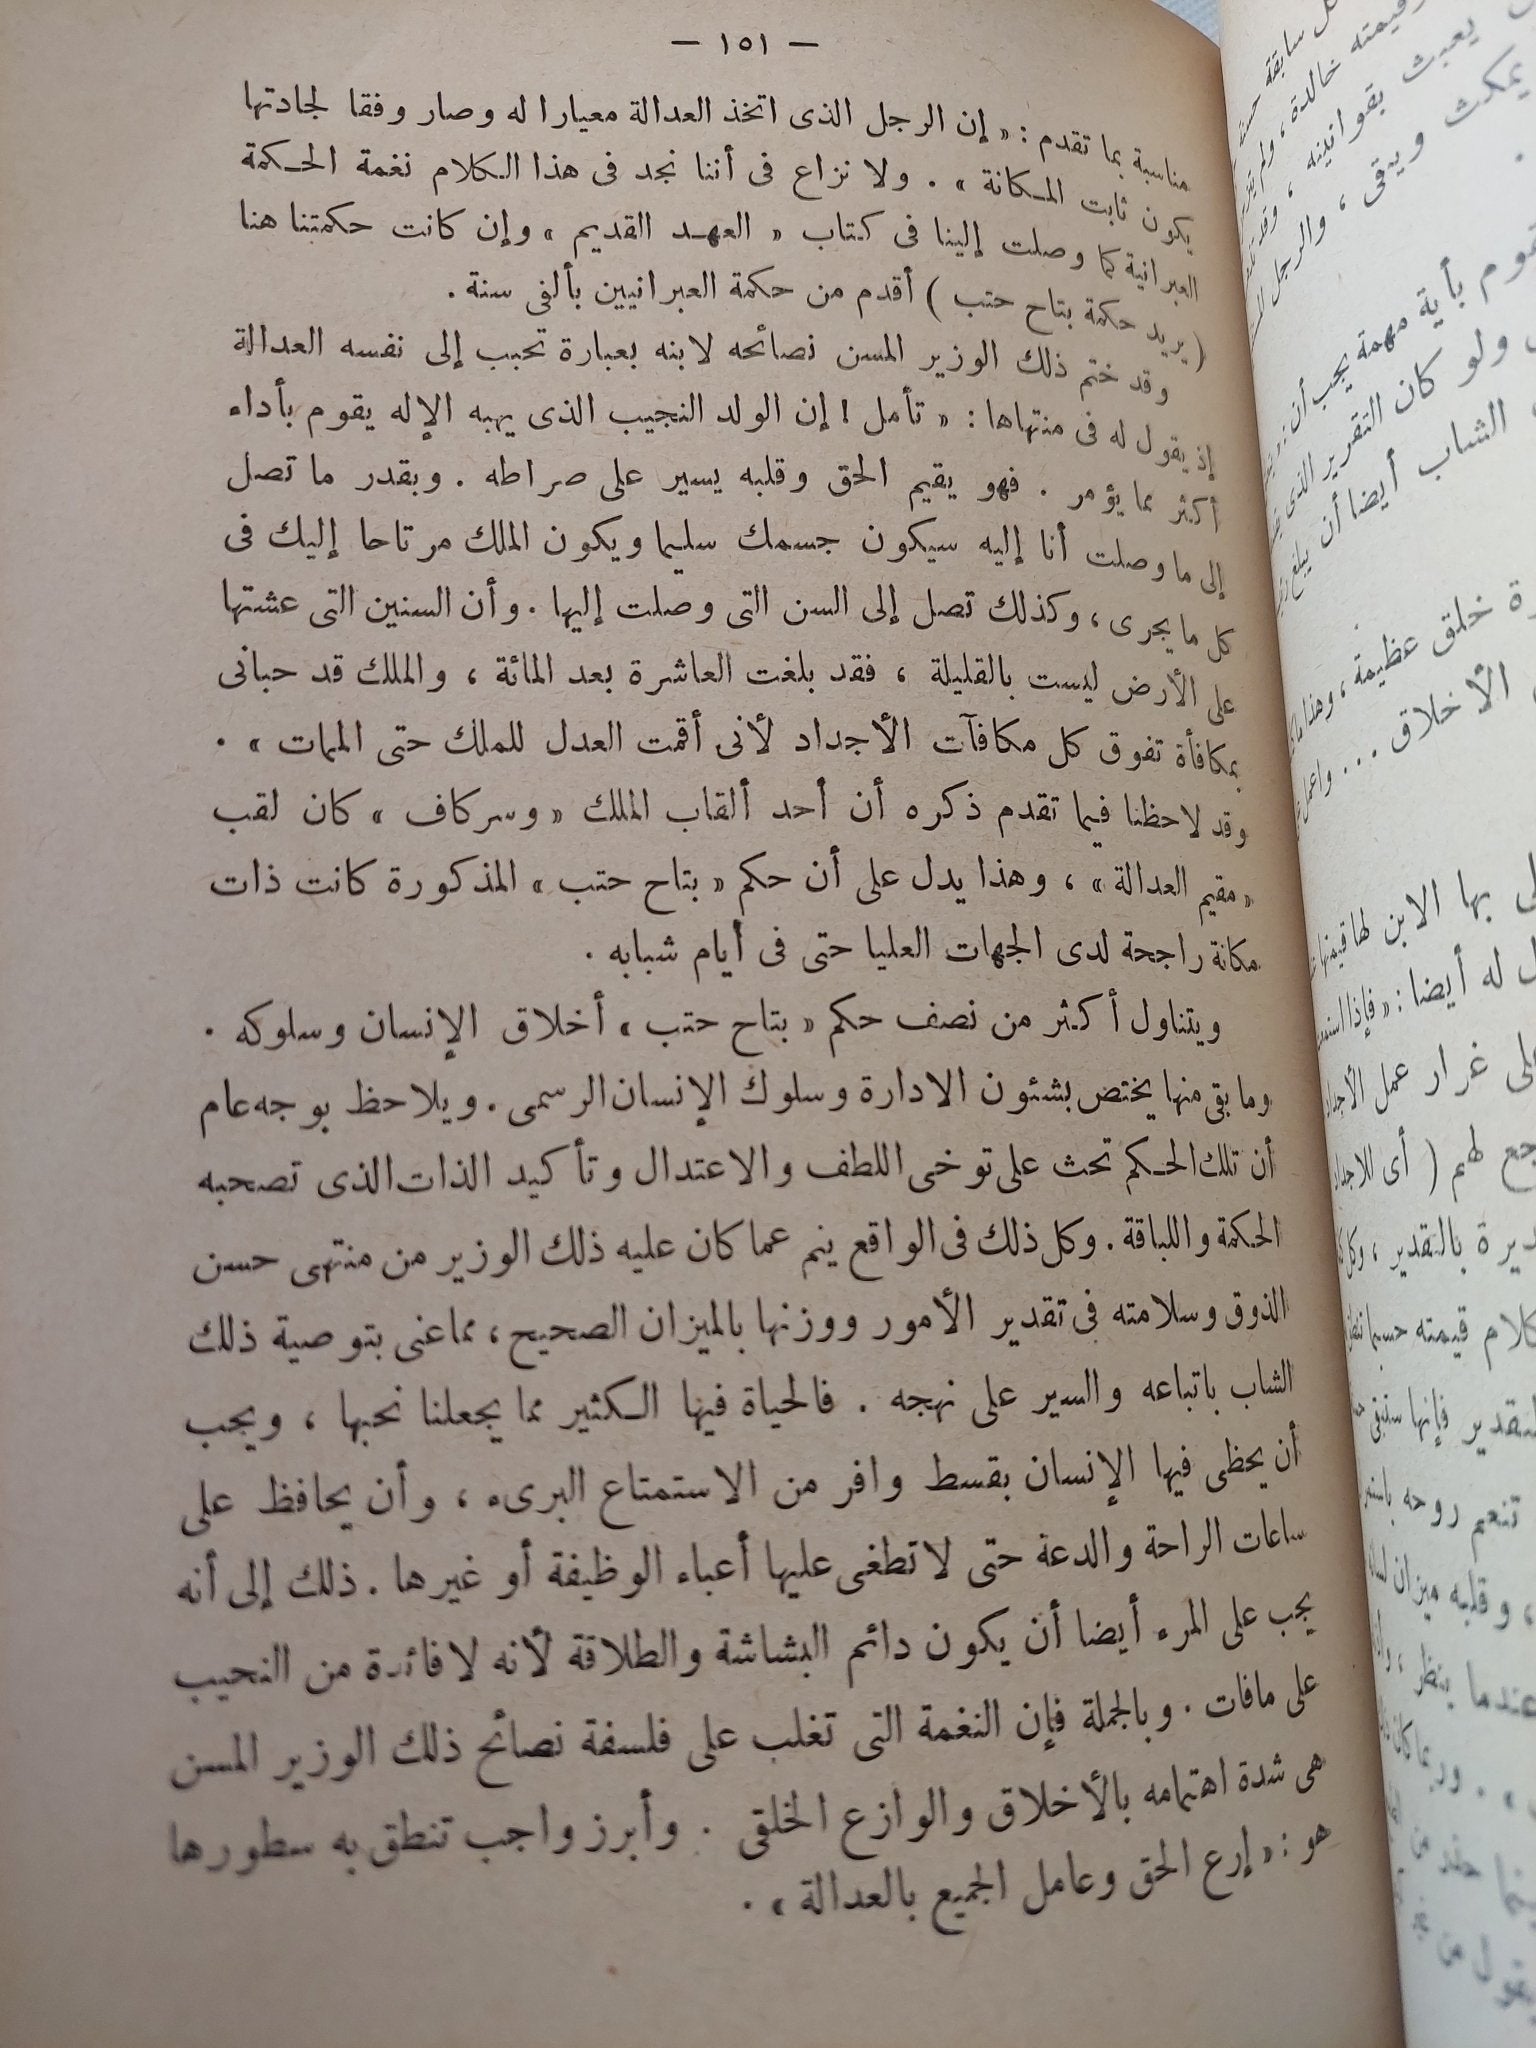 — ١٥١ —
مناسبة بما تقدم : « إن الرجل الذى اتخذ العدالة معيارا له وصار وفقا لجادتها
يكون ثابت المكانة » . ولا نزاع فى أننا نجد فى هذا الكلام نغمة الحكمة
العبرانية كما وصلت إلينا فى كتاب « العهد القديم » وإن كانت حكمتنا هنا
( يريد حكمة بتاح حتب ) أقدم من حكمة العبرانيين بألفى سنة .
وقد ختم ذلك الوزير المسن نصائحه لابنه بعبارة تحبب إلى نفسه العدالة
إذ يقول له فى منتهاها : « تأمل ! إن الولد النجيب الذى يهبه الإله يقوم بأداء
أكثر مما يؤمر . فهو يقيم الحق وقلبه يسير على صراطه . وبقدر ما تصل
إلى ما وصلت أنا إليه سيكون جسمك سليما ويكون الملك مرتاحا إليك فى
كل ما يجرى ، وكذلك تصل إلى السن التى وصلت إليها . وأن السنين التى عشتها
على الأرض ليست بالقليلة ، فقد بلغت العاشرة بعد المائة ، والملك قد حبانى
بمكافأة تفوق كل مكافآت الأجداد لأنى أقمت العدل للملك حتى الممات » .
وقد لاحظنا فيما تقدم ذكره أن أحد ألقاب الملك « وسركاف » كان لقب
« مقيم العدالة » ، وهذا يدل على أن حكم « بتاح حتب » المذكورة كانت ذات
مكانة راجحة لدى الجهات العليا حتى فى أيام شبابه .
ويتناول أكثر من نصف حكم « بتاح حتب » أخلاق الإنسان وسلوكه .
وما بقى منها يختص بشئون الادارة وسلوك الإنسان الرسمى . ويلاحظ بوجه عام
أن تلك الحكم تحث على توخى اللطف والاعتدال وتأكيد الذات الذى تصحبه
الحكمة واللباقة . وكل ذلك فى الواقع ينم عما كان عليه ذلك الوزير من منتهى حسن
الذوق وسلامته فى تقدير الأمور ووزنها بالميزان الصحيح ، مما عنى بتوصية ذلك
الشاب باتباعه والسير على نهجه . فالحياة فيها الكثير مما يجعلنا نحبها ، ويجب
أن يحظى فيها الإنسان بقسط وافر من الاستمتاع البرىء ، وأن يحافظ على
ساعات الراحة والدعة حتى لا تطغى عليها أعباء الوظيفة أو غيرها . ذلك إلى أنه
يجب على المرء أيضا أن يكون دائم البشاشة والطلاقة لأنه لا فائدة من النحيب
على مافات . وبالجملة فإن النغمة التى تغلب على فلسفة نصائح ذلك الوزير المسن
هى شدة اهتمامه بالأخلاق والوازع الخلقى . وأبرز واجب تنطق به سطورها
هو : « إرع الحق وعامل الجميع بالعدالة » .
سابقة
وقيمته خالدة ،
يعبث بقوانينه ،
يمكث ويبقى ، والرجل
بأية مهمة يجب أن
ولو كان التقرير الذى
الشاب أيضا أن يبلغ
خلق عظيمة ، وهذا
الأخلاق . . . واعمل
بها الابن لها قيمتها
له أيضا : « فإذا استمعت
على غرار عمل الأجداد
لهم ( أى للاجداد
بالتقدير ،
قيمته حسبما
فإنها ستبقى
تنعم روحه
، وقلبه ميزان
عندما ينظر ،
. وربما كان